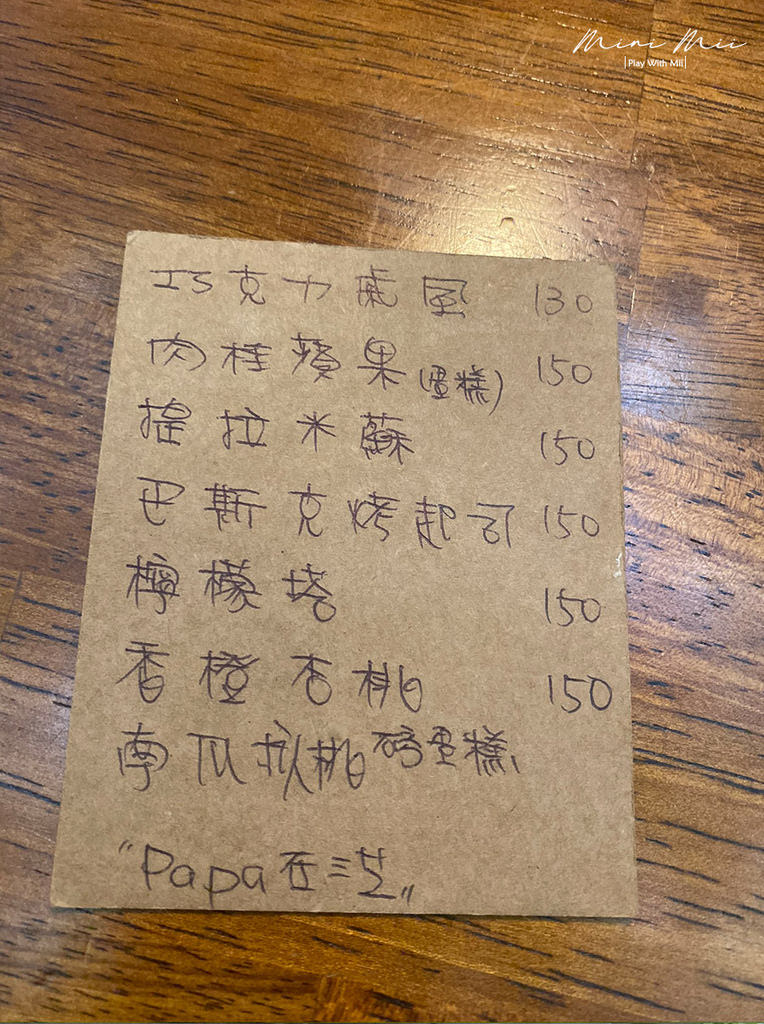 Mini Mii
|Play With Mii|
巧克力戚風 130
肉桂蘋果(蛋糕) 150
提拉米蘇 150
巴斯克烤起司 150
檸檬塔 150
香橙杏桃 150
南瓜 磅蛋糕
"Papa在三芝"